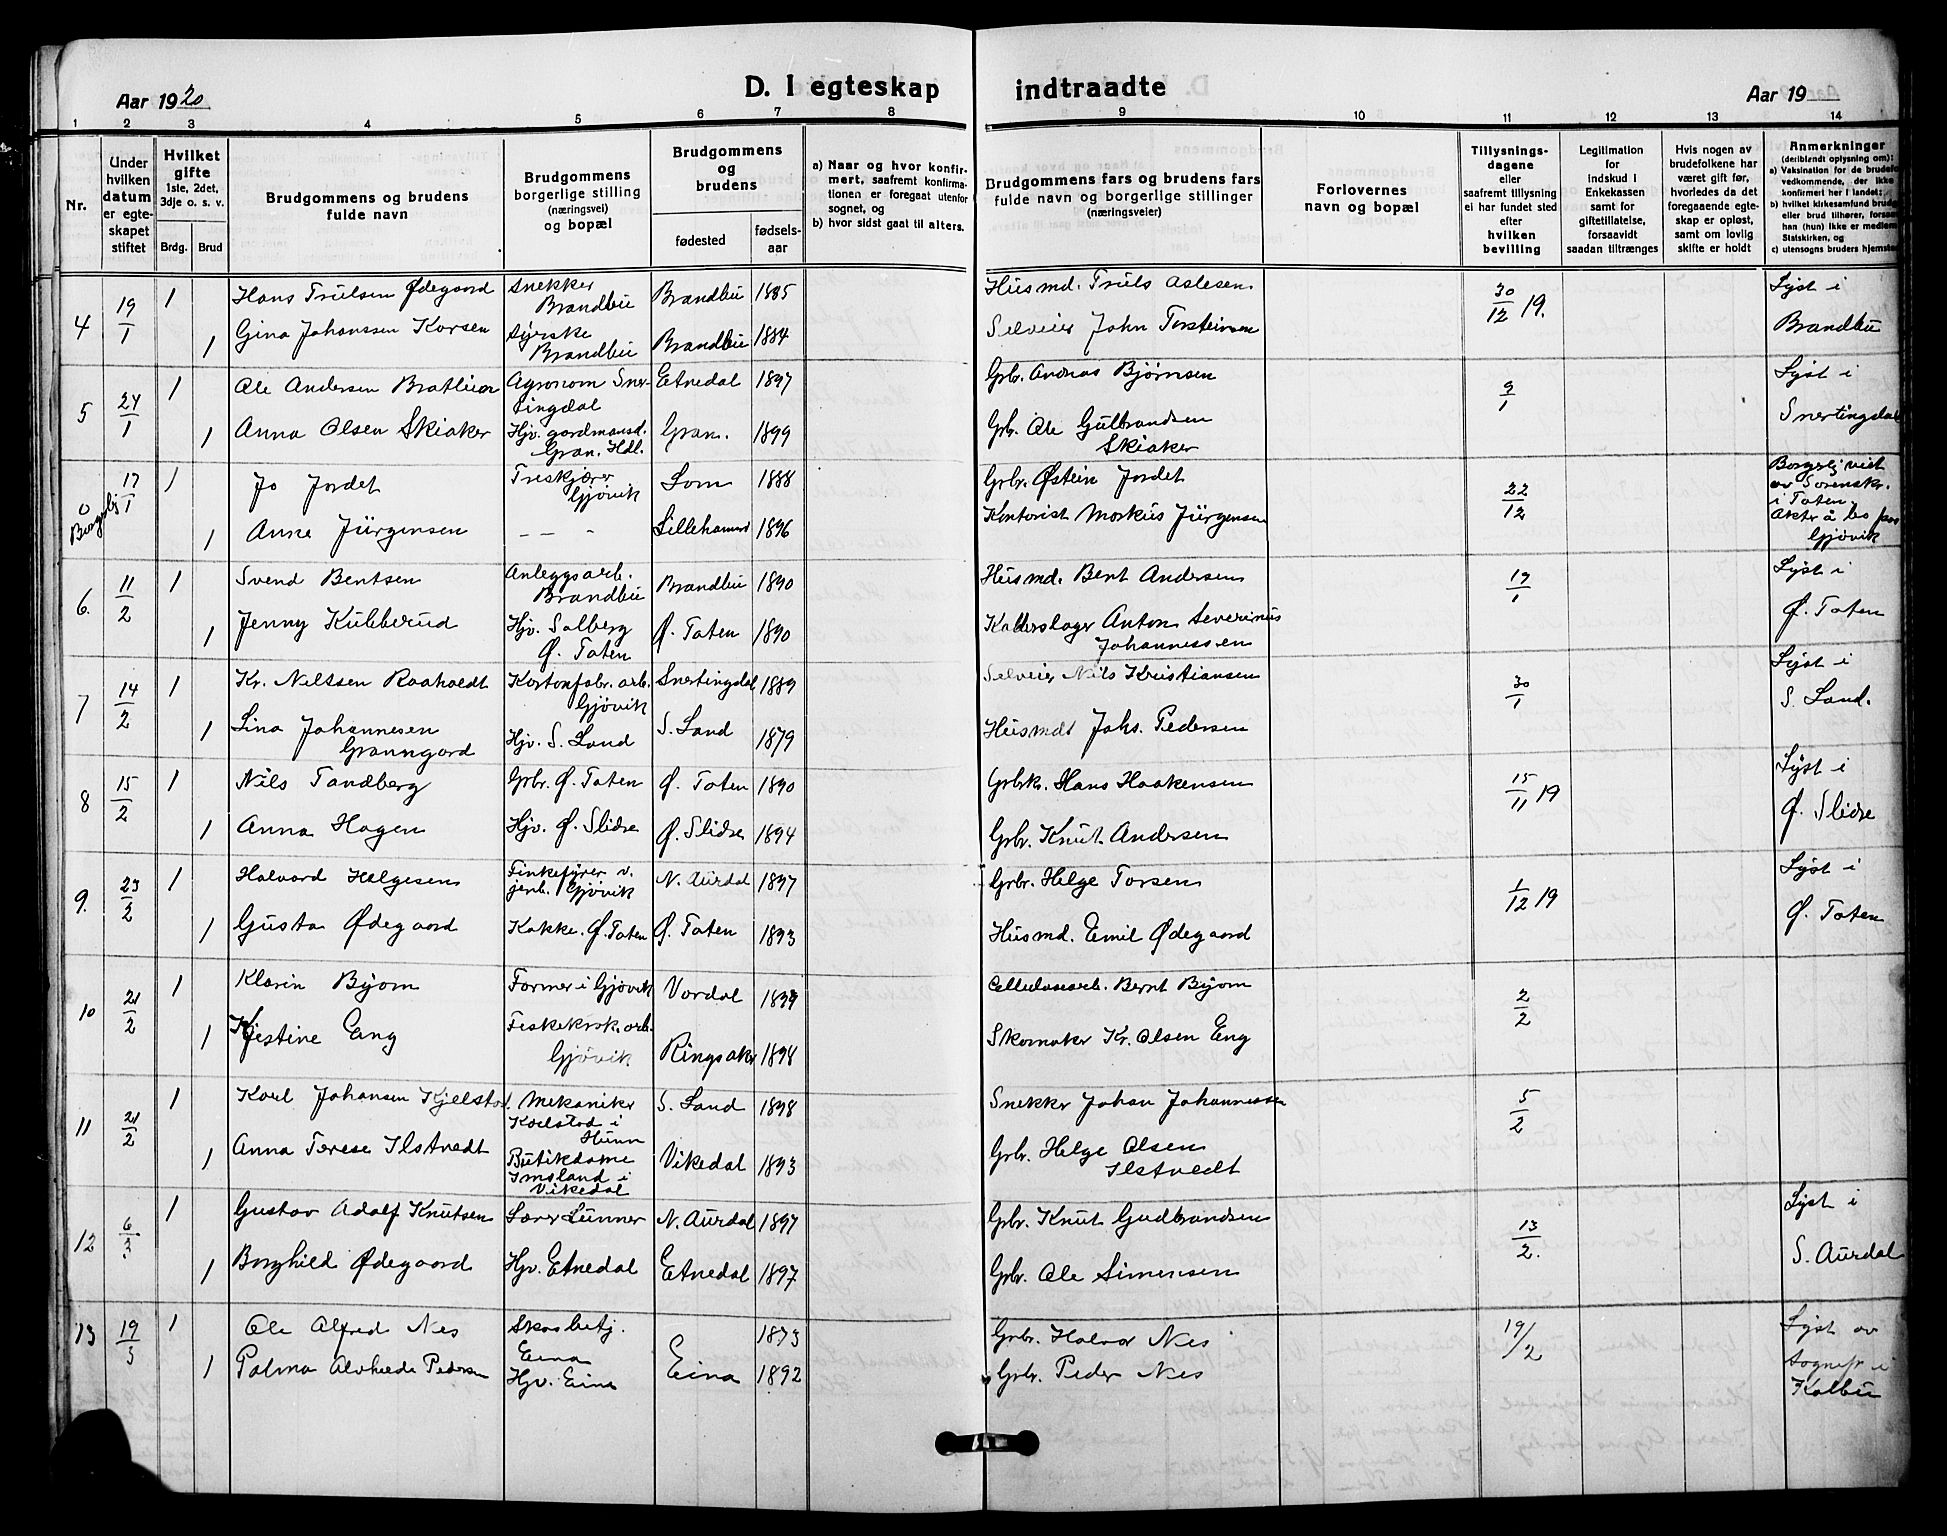 Aar 1920 D. I egteskap indtraadte Aar 19
1 2 3 4 5 6 7 8 9 10 11 12 13 14
Nr.
Under hvilken datum er egteskapet stiftet
Hvilket gifte 1ste, 2det, 3dje o. s. v.
Brdg. Brud
Brudgommens og brudens fulde navn
Brudgommens borgerlige stilling (næringsvei) og bopæl
Brudgommens og brudens
fødested fødselsaar
a) Naar og hvor konfirmert, saafremt konfirmationen er foregaat utenfor sognet, og
b) hvor sidst gaat til alters.
Brudgommens fars og brudens fars fulde navn og borgerlige stillinger (næringsveier)
Forlovernes navn og bopæl
Tillysningsdagene eller saafremt tillysning ei har fundet sted efter hvilken bevilling
Legitimation for indskud i Enkekassen samt for giftetillatelse, forsaavidt saadan tiltrænges
Hvis nogen av brudefolkene har været gift før, hvorledes da det foregaaende egteskap er opløst, samt om lovlig skifte er holdt
Anmerkninger (deriblandt oplysning om):
a) Vaksination for de brudefo vedkommende, der ikke konfirmert her i landet;
b) hvilket kirkesamfund brudg eller brud tilhører, forsaa han (hun) ikke er medlem Statskirken, og
c) utensogns bruders hjemsted
4 19/1 1 Hans Trulsen Ødegaard Snekker Brandbu Brandbu 1885 Husmd. Truls Aslesen 30/12 19. Lyst i
1 Gina Johanssen Korsen Syerske Brandbu Brandbu 1884 Selveier John Torsteinsen Brandbu
5 24/1 1 Ole Andersen Bratlien Agronom Snertingdal Etnedal 1897 Grb. Andras Bjørnsen 9/1 Lyst i
1 Anna Olsen Skiaker Hjv. gardmansd. Gran. Hdl. Gran. 1899 Grb. Ole Gulbrandsen Skiaker Snertingdal
0 Borgerlj 17/1 1 Jo Jordet Treskjærer Gjøvik Lom 1888 Grbr. Østein Jordet 22/12 Borgerlj viet av Sorenskr. i Toten.
1 Anne Jürgensen — — - Lillehammer 1896 Kontorist Markus Jürgensen Gjøvik
6. 11/2 1 Svend Bentsen Anleggsarb. Brandbu Brandbu 1890 Husmd. Bent Andersen 19/1 Lyst i
1 Jenny Kubberud Hjv. Solberg Ø. Toten Ø. Toten 1890 Anton Severinus Johannessen Ø. Toten
7 14/2 1 Kr. Nilssen Raaholdt Kartonfabr. arb. Gjøvik Snertingdal 1889 Selveier Nils Kristiansen 30/1 Lyst i
1 Lina Johannesen Granngard Hjv. S. Land S. Land 1879 Husmdt Johs. Pedersen S. Land.
8 15/2 1 Nils Tandberg Grbr. Ø. Toten Ø. Toten 1890 Grbrk. Hans Haakensen 15/11 19 Lyst i
1 Anna Hagen Hjv. Ø. Slidre Ø. Slidre 1894 Grbr. Knut Andersen Ø. Slidre
9. 23/2 1 Halvard Helgesen jenb. Gjøvik N. Aurdal 1897 Grbr. Helge Torsen 1/12 19 Lyst i
1 Gusta Ødegaard Kokke. Ø. Toten Ø. Toten 1893 Husmd. Emil Ødegaard Ø. Toten
10 21/2 1 Klarin Byom Former i Gjøvik Vardal Cellulosearb. Bernt Byom 2/2
1 Kjestine Eng arb. Gjøvik Ringsaker 1898 Skomaker Kr. Olsen Eng
11 21/2 1 Karl Johansen Mekaniker i Hunn S. Land 1898 Snekker Johan Johannessen 5/2
1 Anna Terese Ilstvedt Butikdame Imsland i Vikedal Vikedal 1893 Grbr. Helge Olsen Ilstvedt
12 6/3 1 Gustav Adolf Knutsen Lærer Lunner N. Aurdal 1897 Grbr. Knut Gudbrandsen 13/2. Lyst i
1 Borghild Ødegaard Hjv. Etnedal Etnedal 1897 Grbr. Ole Simensen S. Aurdal
13 19/3 1 Ole Alfred Nes Skogbetj. Eina 1873 Grbr. Halvor Nes 19/2 Lyst av
1 Palma Alvheede Pedersen Hjv. Eina Eina 1892 Grbr. Peder Nes sognepr i Kolbu